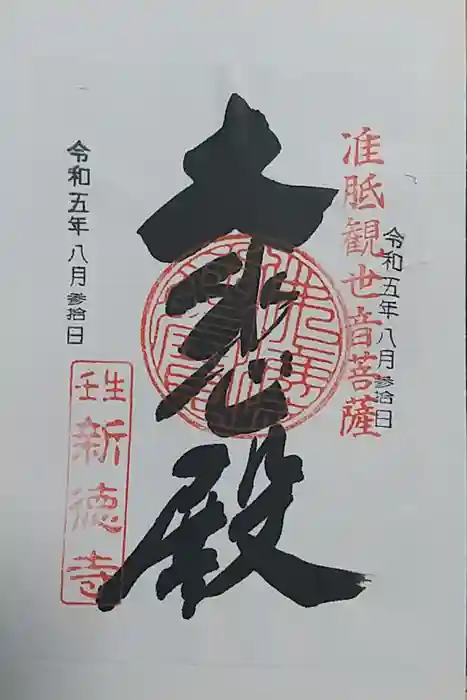 准胝観世音菩薩
令和五年八月参拾日
大悲殿
令和五年八月参拾日
壬生
新徳寺